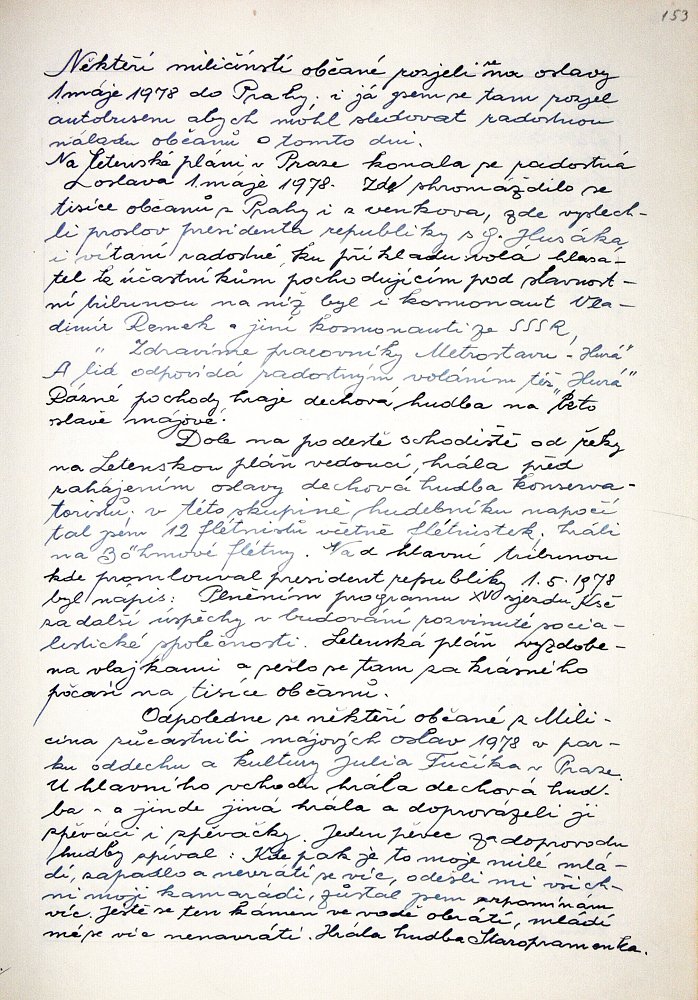 153
Někteří miličínští občané rozjeli se na oslavy
1 máje 1978 do Prahy. i já jsem se tam rozjel
autobusem abych mohl sledovat radostnou
náladu občanů o tomto dni.
Na Letenské pláni v Praze konala se radostná
oslava 1. máje 1978. Zde shromáždilo se
tisíce občanů z Prahy i z venkova, zde vyslech-
li proslov presidenta republiky s. G. Husáka,
i vítání radostné, ku příkladu volá hlasa-
tel k účastníkům pochodujícím pod slavnost-
ní tribunou na níž byl i kosmonaut Vla-
dimír Remek a jiní kosmonauti ze SSSR,
" Zdravíme pracovníky Metrostavu - Hurá"
A lid odpovídá radostným voláním též "Hurá"
Různé pochody hraje dechová hudba na této
oslavě májové.
Dole na podestě schodiště od řeky
na Letenskou pláň vedoucí, hrála před
zahájením oslavy dechová hudba konserva-
toristů. v této skupině hudebníku napočí
tal jsem 12 flétnistů včetně flétnistek, hráli
na Böhmové flétny. Nad hlavní tribunou
kde promlouval president republiky 1.5.1978
byl nápis: Plněním programu XV sjezdu KSČ
za další úspěchy v budování rozvinuté socia-
listické společnosti. Letenská pláň vyzdobe-
na vlajkami a sešlo se tam za krásného
počasí na tisíce občanů.
Odpoledne se někteří občané z Mili-
čína zúčastnili májových oslav 1978 v par-
ku oddechu a kultury Julia Fučíka v Praze.
U hlavního vchodu hrála dechová hud-
ba - a jinde jiná hrála a doprovázeli ji
zpěváci i zpěvačky. Jeden pěvec za doprovodu
hudby zpíval: Kde pak je to moje milé mlá-
dí, zapadlo a nevrátí se víc, odešli mi všich-
ni moji kamarádi, zůstal jsem vzpomínám
víc. Ještě se ten kámen ve vodě obrátí, mládí
mé se víc nenavrátí. Hrála hudba Staropramenka.